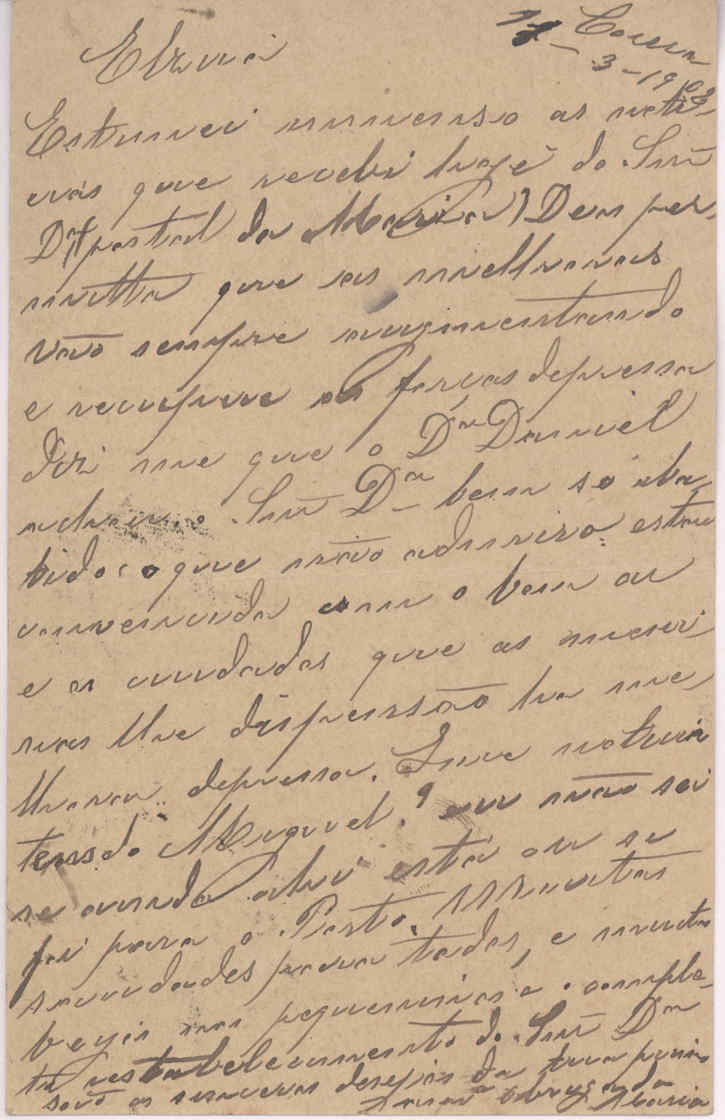 Elzira
Coura
17-3-1903
Estimei immenso as noti-
cias que recebi hoje do Snr
Dr (postal da Maria) Deus per-
mitta que as melhoras
vão sempre augmentando
e recupere as forças depressa
diz me que o Dr Daniel
achou o Snr Dr bem so aba
tido, o que não admira: estou
convencida com o bom ar
e os cuidados que as meni-
nas lhe dispensão ha me
lhorar depressa. Que noticia
tens do Miguel? eu não sei
se ainda ahi está ou se
foi para o Porto. Muitas
saudades para todos, e muitos
beijos nos pequeninos e o comple-
to restabelecimento do Snr Dr
são os sinceros desejos da tua prima
obrigada
Maria